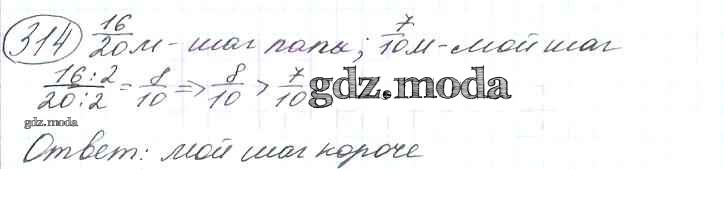 314 16/20 м - шаг папы; 7/10 м - мой шаг
16:2/20:2 = 8/10 => 8/10 > 7/10
gdz.moda
gdz.moda
Ответ: мой шаг короче